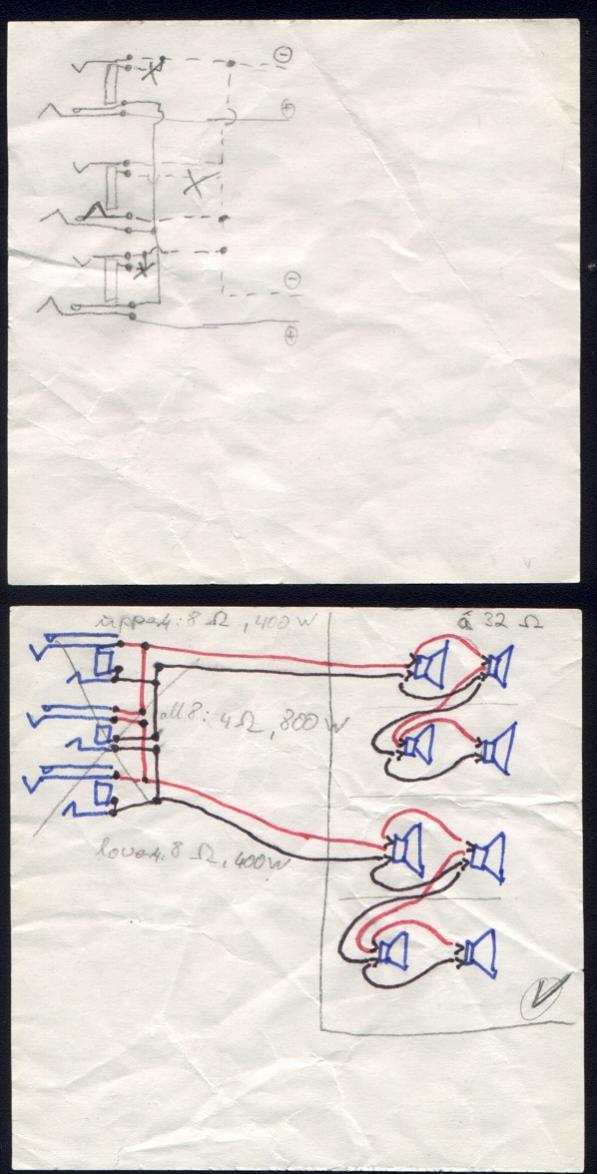 ⊖
⊕
⊖
⊕
upper 4: 8 Ω, 400 W
á 32 Ω
all 8: 4 Ω, 800 W
lower 4: 8 Ω, 400 W